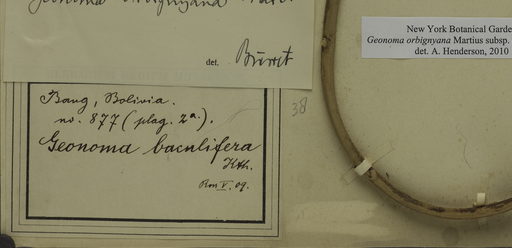 Geonoma orbignyana Mart.
det. Burret
New York Botanical Garde
Geonoma orbignyana Martius subsp.
det. A. Henderson, 2010
38
Bang, Bolivia.
no. 877 (plag. 2a).
Geonoma baculifera
Kth.
Rm V. 09.